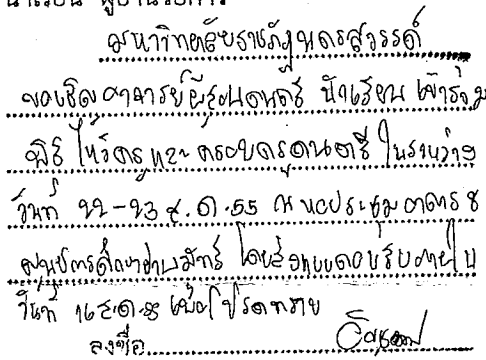 นำเรียน ผู้อำนวยการ
มหาวิทยาลัยราชภัฏนครสวรรค์
ขอเชิญอาจารย์ผู้สอนดนตรี นักเรียน เข้าร่วม
พิธี ไหว้ครู และ ครอบครูดนตรี ในระหว่าง
วันที่ 22-23 ส.ค. 55 ณ หอประชุม อาคาร 8
ศูนย์การศึกษาย่านมัทรี โดยส่งแบบตอบรับภายใน
วันที่ 16 ส.ค. 55 เพื่อโปรดทราบ
ลงชื่อ